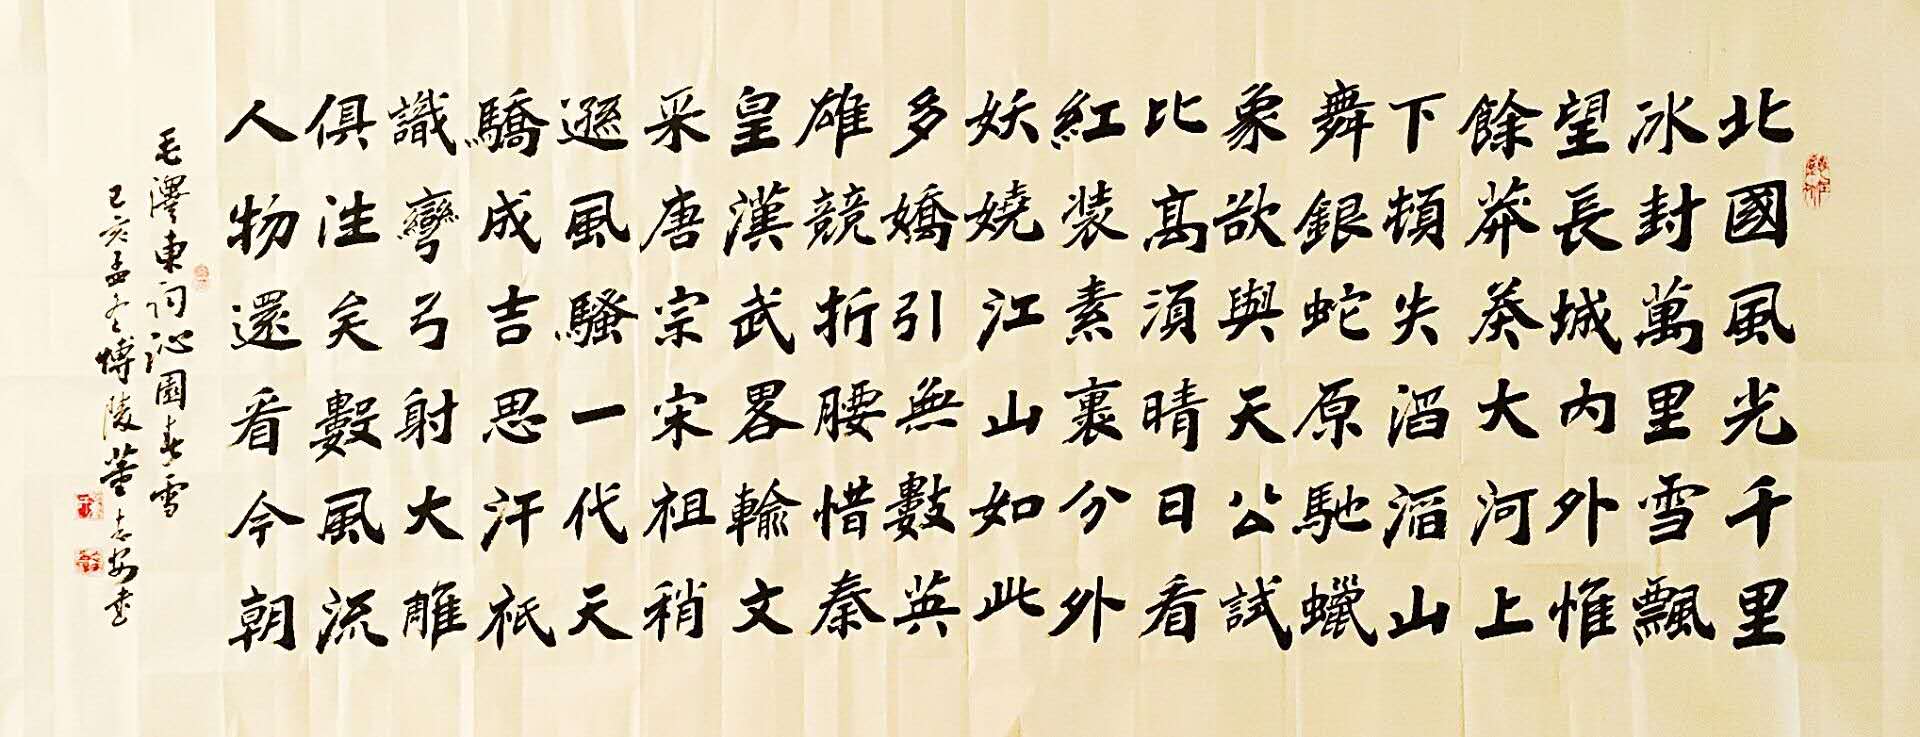 北國風光千里
冰封萬里雪飄
望長城內外惟
餘莽莽大河上
下頓失滔滔山
舞銀蛇原馳蠟
象欲與天公試
比高須晴日看
紅裝素裹分外
妖嬈江山如此
多嬌引無數英
雄競折腰惜秦
皇漢武畧輸文
采唐宗宋祖稍
遜風騷一代天
驕成吉思汗祇
識彎弓射大雕
俱往矣數風流
人物還看今朝
毛澤東詞沁園春雪
己亥孟冬博陵董志安書